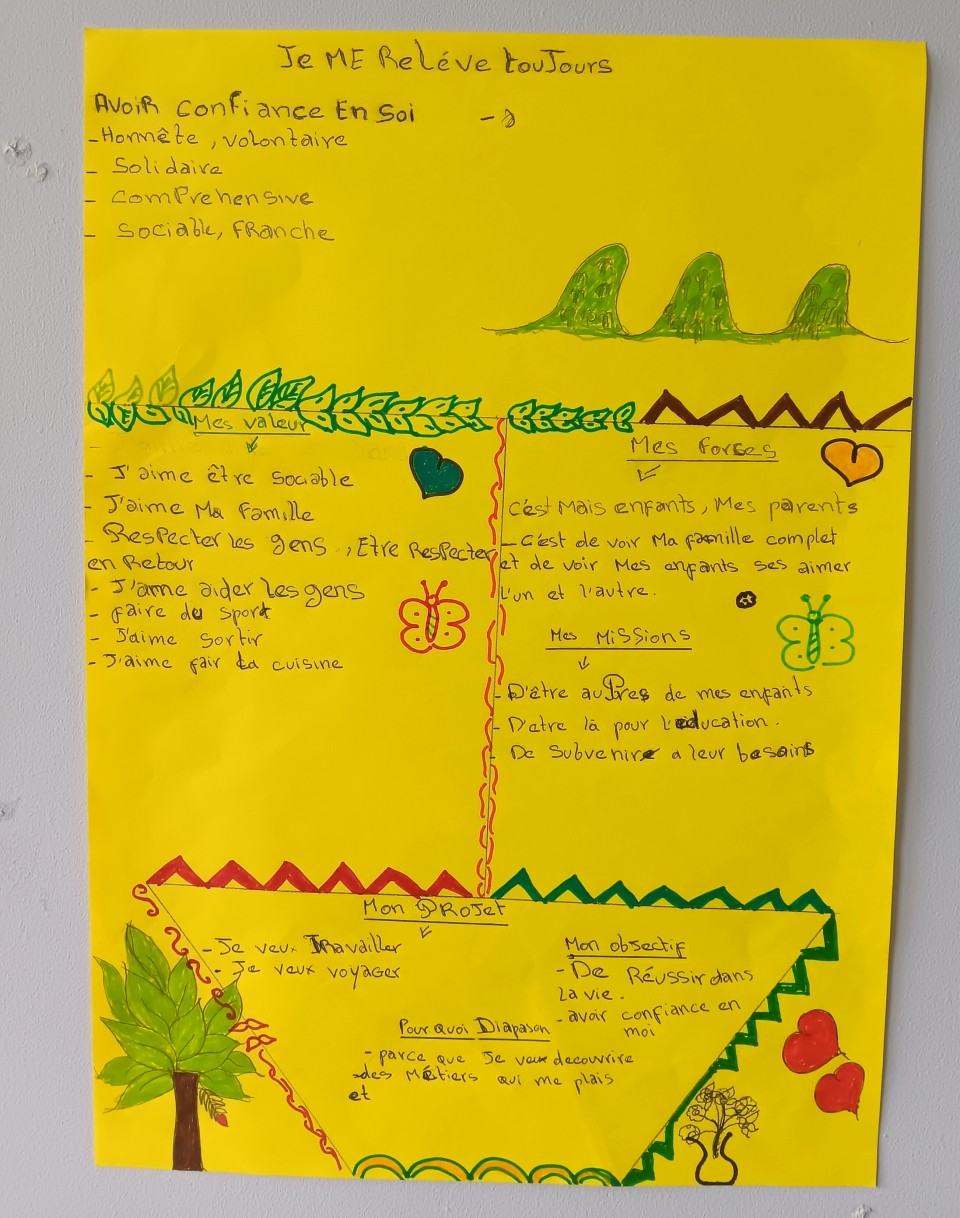 Je ME Reléve toujours
Avoir confiance En Soi
- Honnête , volontaire
- Solidaire
- Comprehensive
- Sociable, FRanche
Mes valeur
- J'aime être sociable
- J'aime Ma famille
- Respecter les gens , Etre Respecter
en Retour
- J'aime aider les gens
- faire du sport
- J'aime sortir
- J'aime fair La cuisine
Mes forces
c'est Mais enfants, Mes parents
- c'est de voir Ma famille complet
et de voir Mes enfants ses aimer
L'un et l'autre.
Mes Missions
- D'être auPres de mes enfants
- D'etre là pour l'education.
- De Subvenire a leur besoins
Mon PRojet
- Je veux Travailler
- Je veux voyager
Mon objectif
- De Réussir dans
La vie.
- avoir confiance en
moi
Pour quoi Diapason
- parce que Je veux decouvrire
des Métiers qui me plais
et